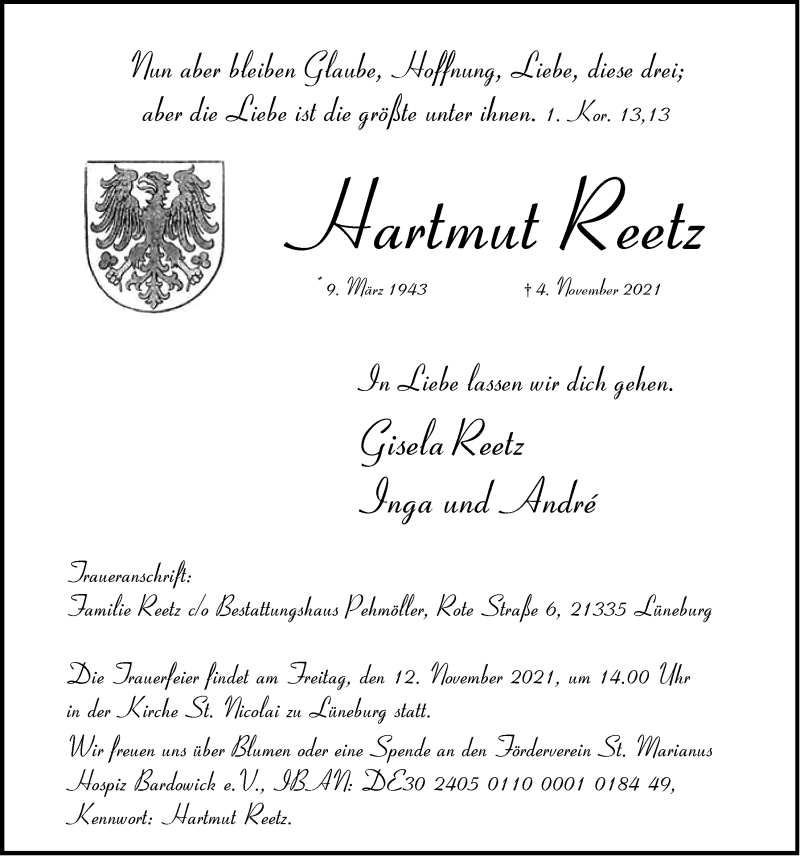 Nun aber bleiben Glaube, Hoffnung, Liebe, diese drei;
aber die Liebe ist die größte unter ihnen. 1. Kor. 13,13
Hartmut Reetz
* 9. März 1943 † 4. November 2021
In Liebe lassen wir dich gehen.
Gisela Reetz
Inga und André
Traueranschrift:
Familie Reetz c/o Bestattungshaus Pehmöller, Rote Straße 6, 21335 Lüneburg
Die Trauerfeier findet am Freitag, den 12. November 2021, um 14.00 Uhr
in der Kirche St. Nicolai zu Lüneburg statt.
Wir freuen uns über Blumen oder eine Spende an den Förderverein St. Marianus
Hospiz Bardowick e.V., IBAN: DE30 2405 0110 0001 0184 49,
Kennwort: Hartmut Reetz.